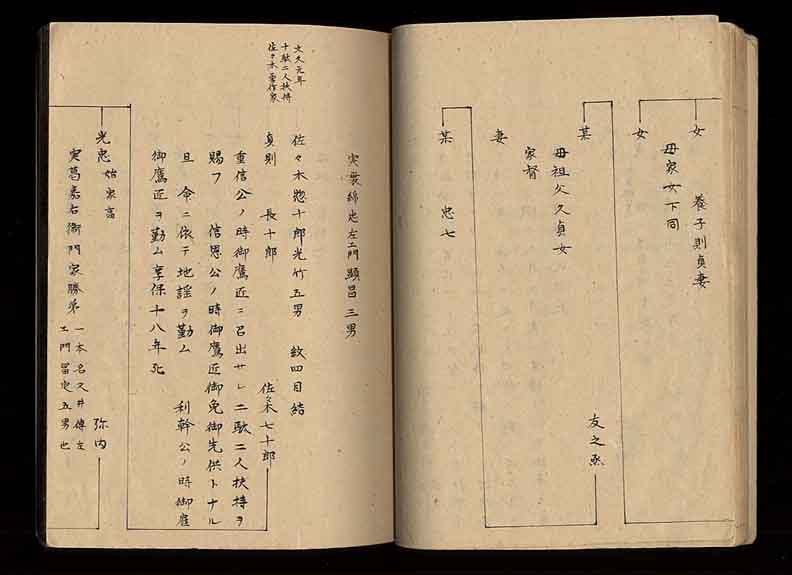 女　養子則貞妻
女
母家女下同
某　友之丞
母祖父久貞女
家督
妻
某　忠七
実裳綿忠左エ門顕昌三男
佐々木惣十郎光竹五男　紋四目結
佐々木七十郎
貞則　長十郎
重信公ノ時御鷹匠ニ召出サレ二駄二人扶持ヲ
賜フ　信恩公ノ時御鷹匠御免御先供トナル
且　命ニ依テ地謡ヲ勤ム　利幹公ノ時御雇
御鷹匠ヲ勤ム享保十八年死
文久元年
十駄二人扶持
佐々木
光忠　始家富　弥内
実葛嘉右衛門家勝弟
一本名久井傳左
エ門富忠五男也